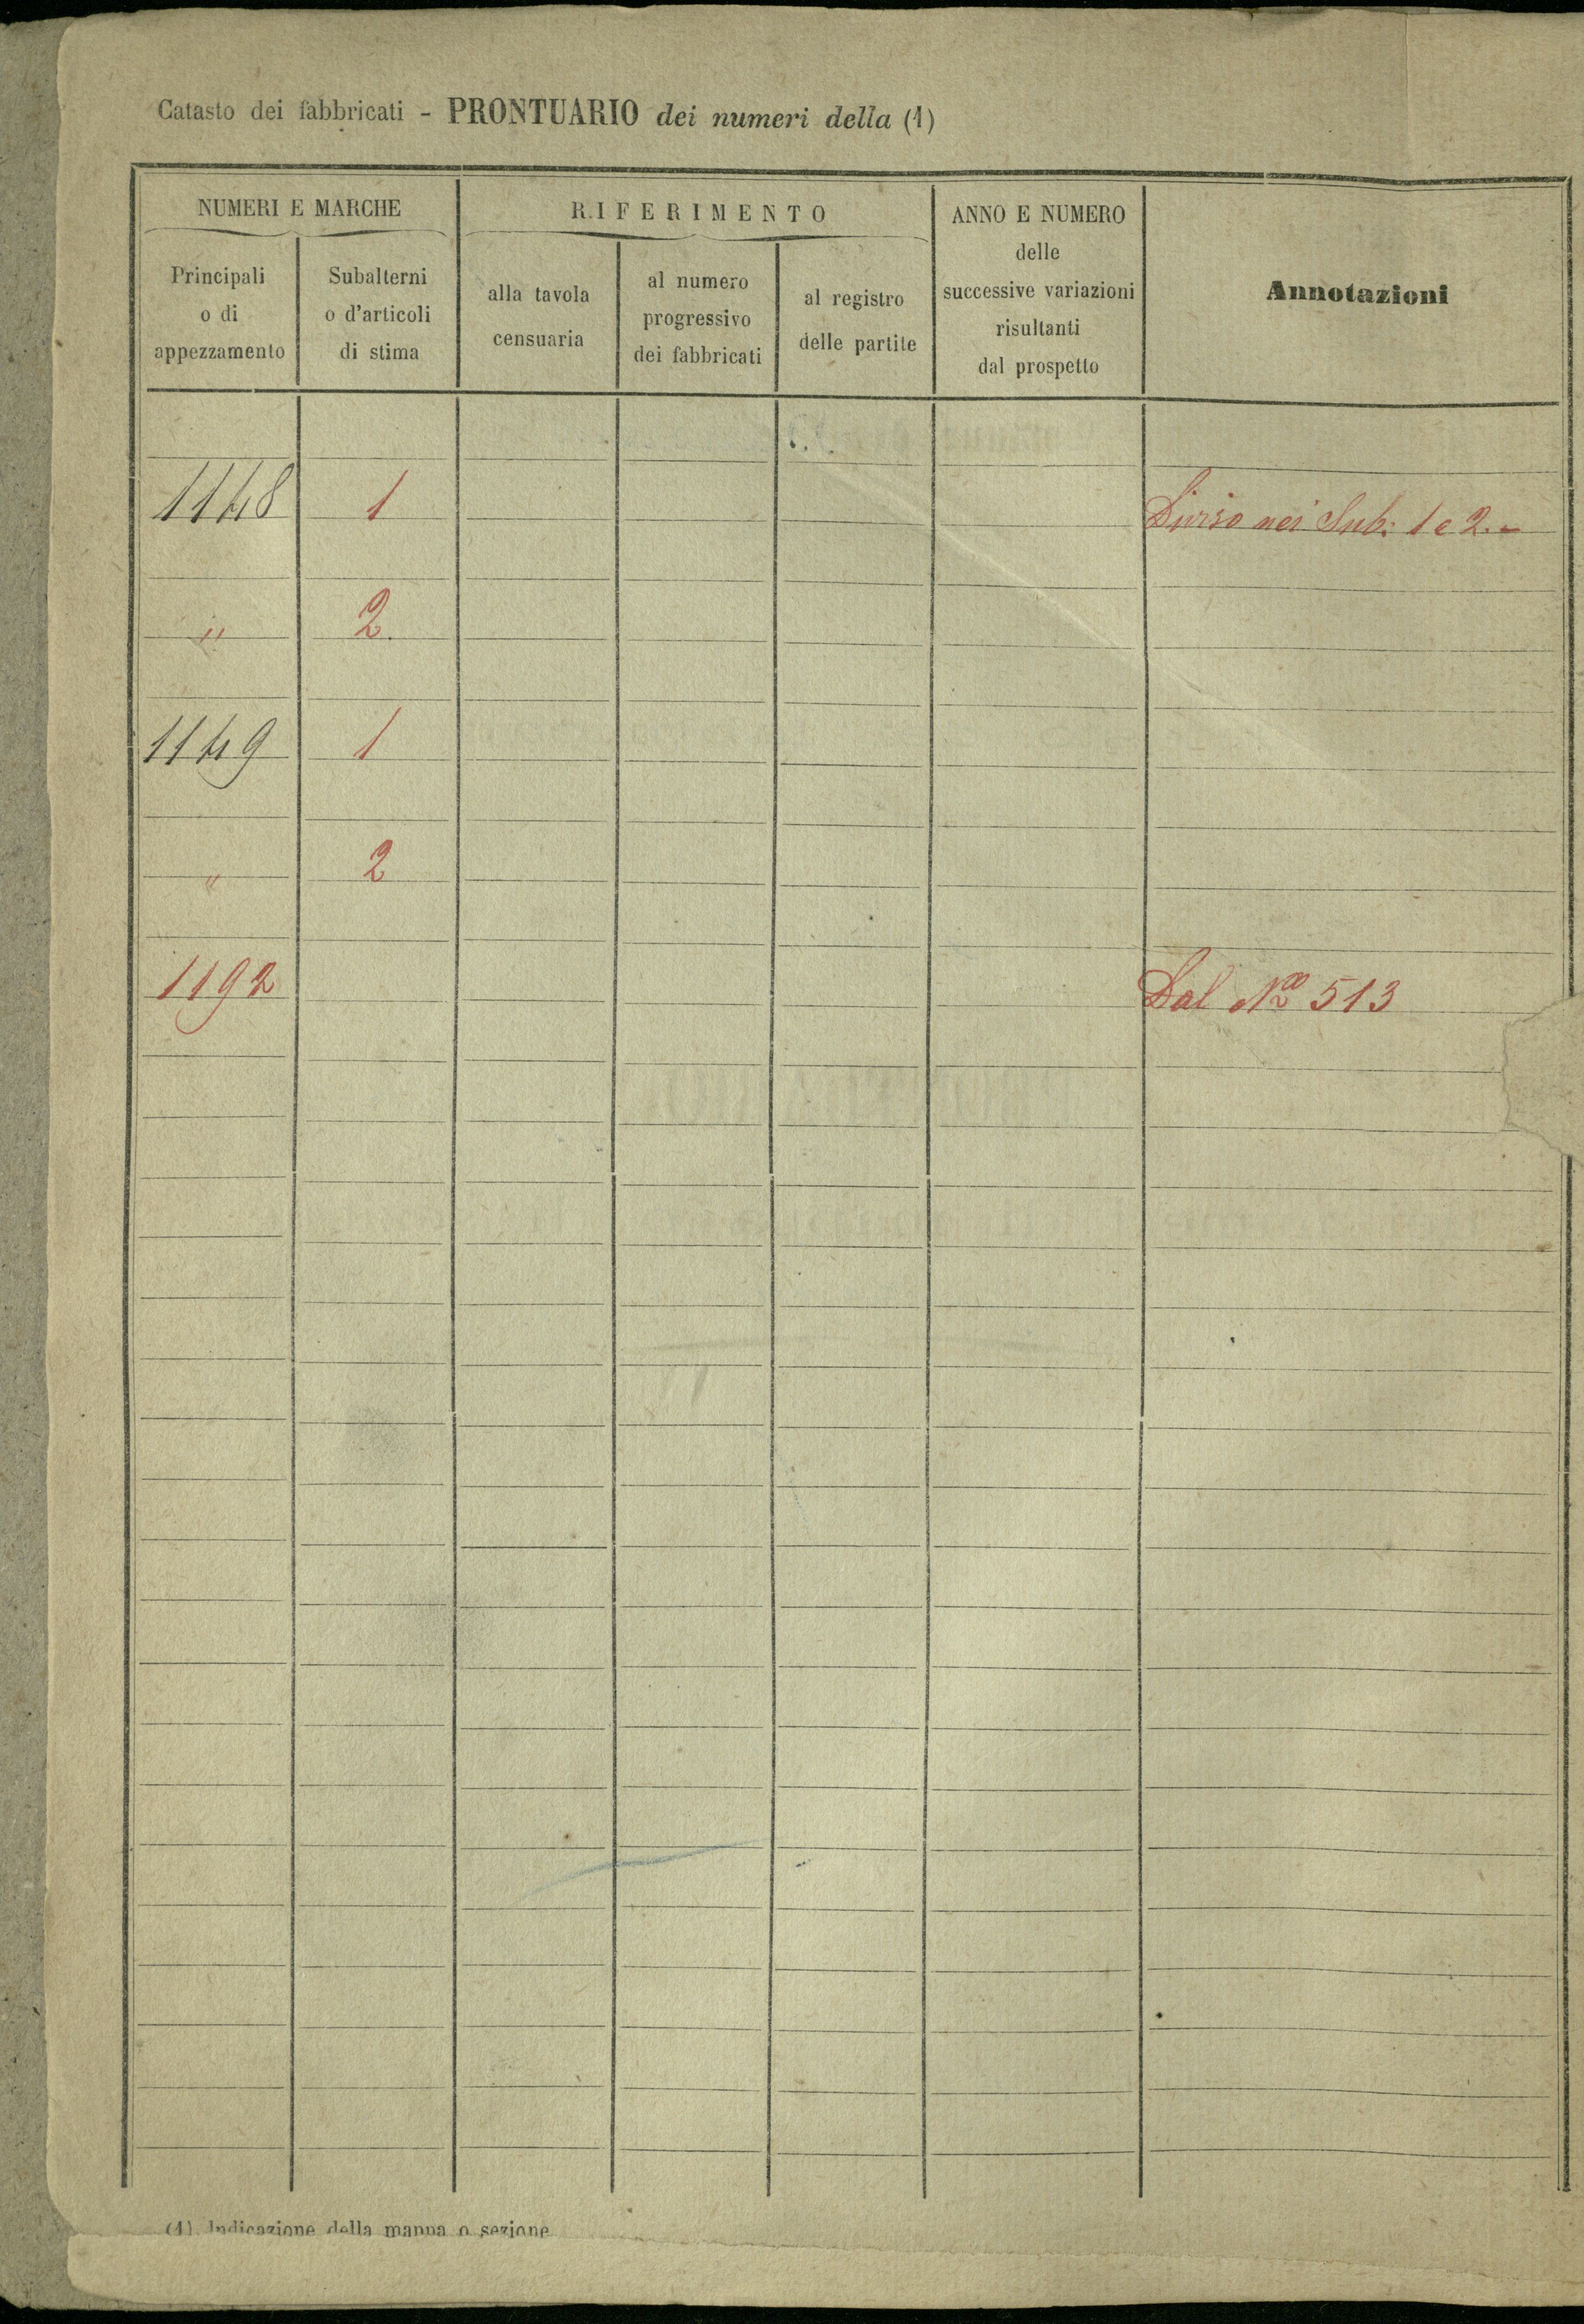 Catasto dei fabbricati - PRONTUARIO dei numeri della (1)
NUMERI E MARCHE
RIFERIMENTO
ANNO E NUMERO
delle
successive variazioni
risultanti
dal prospetto
Annotazioni
Principali
o di
appezzamento
Subalterni
o d'articoli
di stima
alla tavola
censuaria
al numero
progressivo
dei fabbricati
al registro
delle partite
1148 1 Diviso nei Sub: 1 e 2.-
" 2.
1149 1
" 2
1192 Dal No 513
(1) Indicazione della mappa o sezione